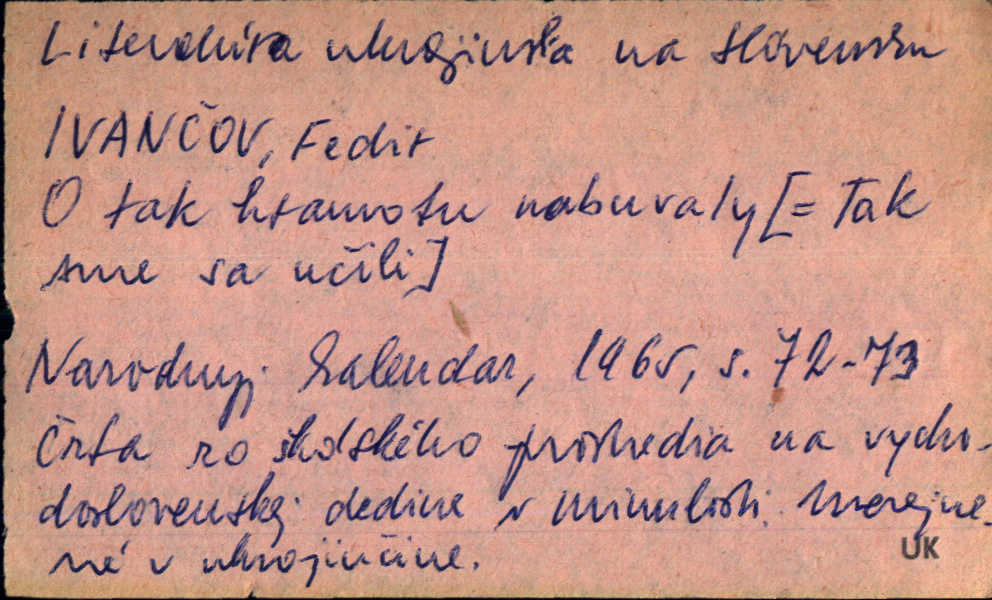 Literatúra ukrajinská na Slovensku
IVANČOV, Fedir
O tak hramotu nabuvaly [= Tak
sme sa učili]
Narodnyj kalendar, 1965, s. 72-73
Črta zo školského prostredia na vycho-
doslovenskej dedine v minulosti. Uverejne-
né v ukrajinčine.
UK